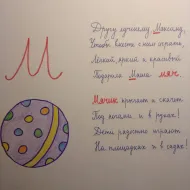 М
Другу лучшему Максиму,
Чтобы вместе с ним играть,
Лёгкий, яркий и красивый
Подарила Маша мяч.
Мячик прыгает и скачет
Под ногами и в руках!
Дети радостно играют
На площадках и в садах!